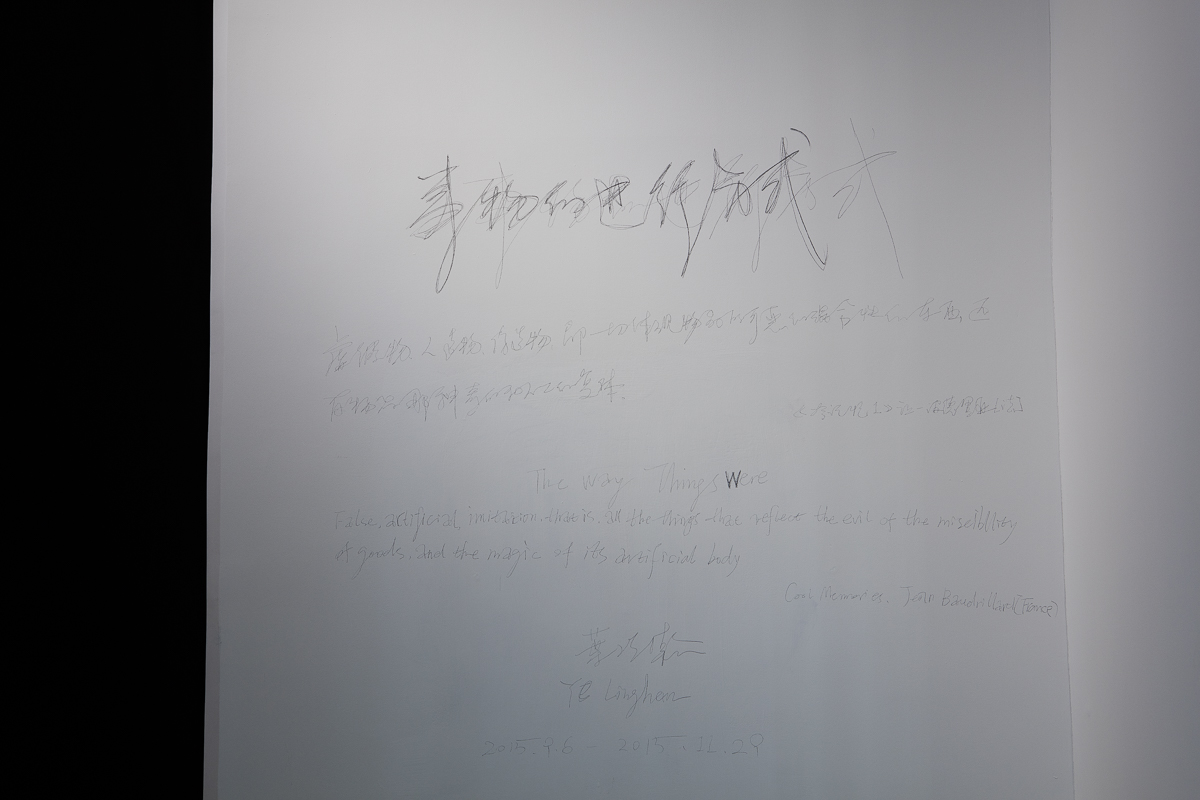 事物的 行 式
虚假物、人造物、仿造物、即一切体现物品的可恶的混合性的东西,还
有物品那神奇的人工的
冷记忆 让·波德里亚[法]
The Way Things Were
Fake, artificial, imitation, that is, all the things that reflect the evil of the miscibility
of goods, and the magic of its artificial body
Cool Memories. Jean Baudrillard [France]
葉凌瀚
Ye Linghan
2015.9.6 - 2015.11.29